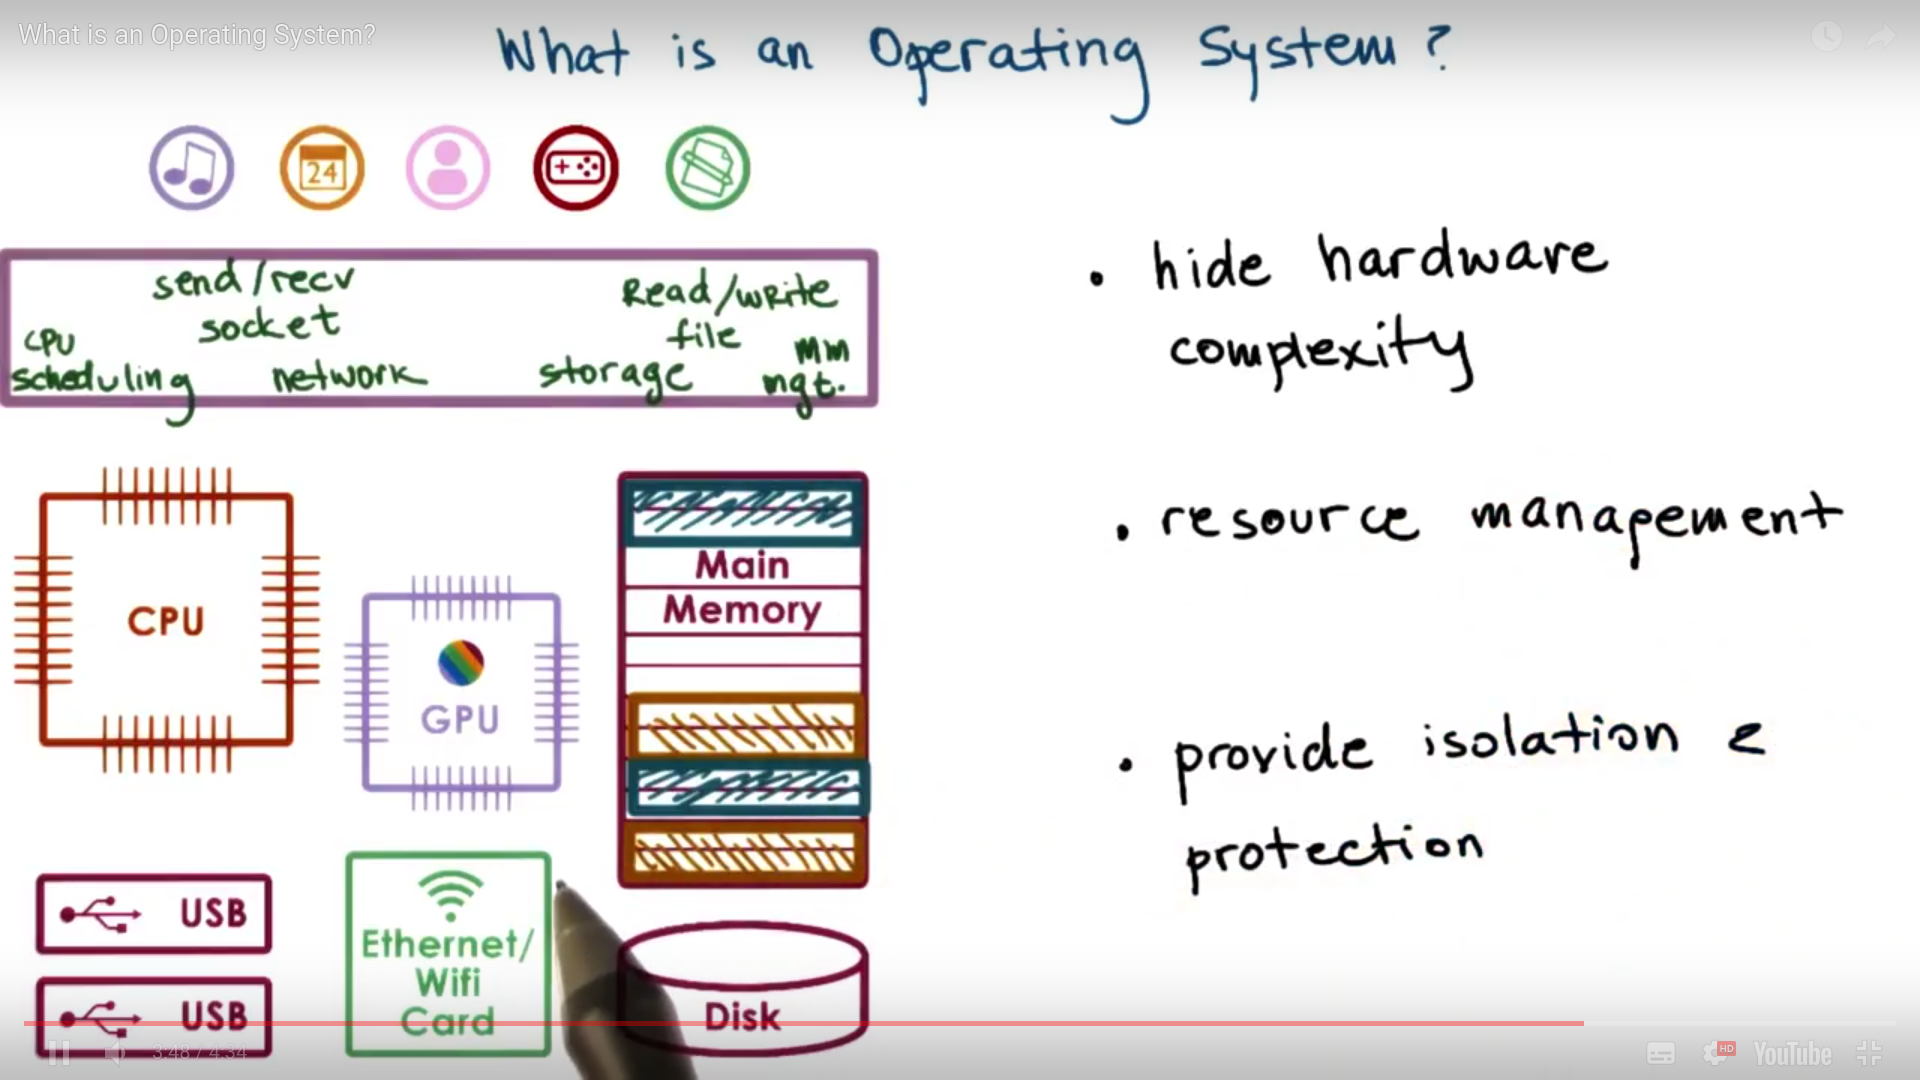 What is an Operating System?
What is an Operating System?
24
send/recv
socket
Read/write
file
CPU
scheduling
network
storage
mm
mgt.
CPU
GPU
Main
Memory
USB
USB
Ethernet/
Wifi
Card
Disk
• hide hardware
complexity
• resource management
• provide isolation &
protection
3:48 / 4:34
HD
YouTube